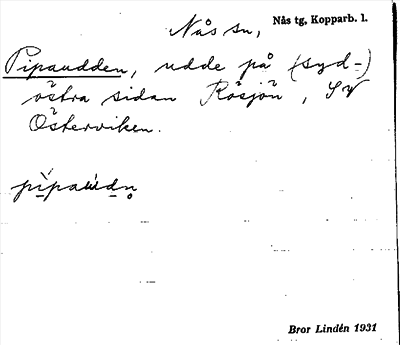 Nås sn, Nås tg, Kopparb. l.
Pipaudden, udde på (syd-)
östra sidan Rösjön, SV
Österviken.
pìpaúdn̥
Bror Lindén 1931